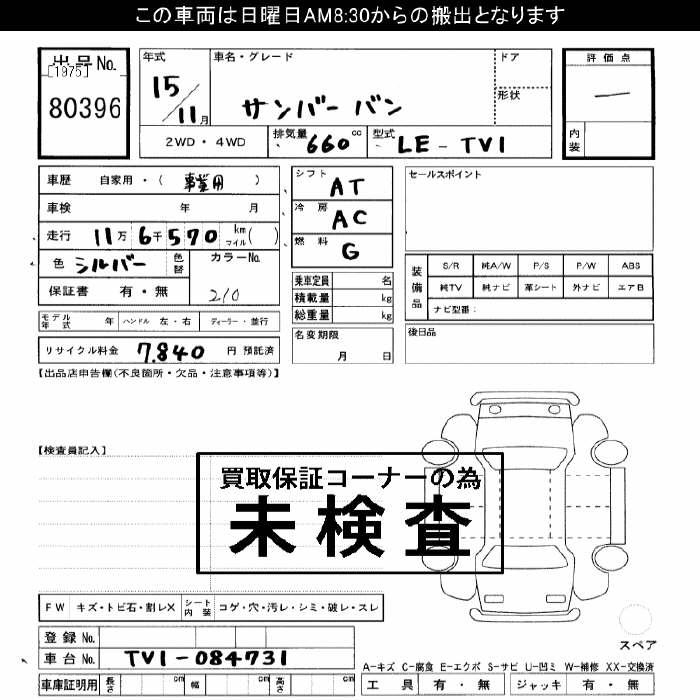 この車両は日曜日AM8:30からの搬出となります
出品No.
[1975]
80396
年式
15
11月
車名・グレード
サンバー バン
ドア
形状
評価点
—
内装
2WD・4WD
排気量 660cc
型式 LE-TV1
車歴 自家用・(事業用)
車検 年 月
走行 11万6千570 km マイル( )
色 シルバー 色替
カラーNo.
210
保証書 有・無
モデル年式 年 ハンドル 左・右 ディーラー・並行
リサイクル料金 7,840 円 預託済
シフト AT
冷房 AC
燃料 G
乗車定員 名
積載量 kg
総重量 kg
名変期限
月 日
セールスポイント
装備品
S/R 純A/W P/S P/W ABS
純TV 純ナビ 革シート 外ナビ エアB
ナビ型番:
後日品
【出品店申告欄(不良箇所・欠品・注意事項等)】
【検査員記入】
買取保証コーナーの為
未検査
FW キズ・トビ石・割レX シート内装 コゲ・穴・汚レ・シミ・破レ・スレ
登録No.
車台No. TV1-084731
車庫証明用 長さ cm 幅 cm 高さ cm
スペア
A-キズ C-腐食 E-エクボ S-サビ U-凹ミ W-補修 XX-交換済
工具 有・無 ジャッキ 有・無